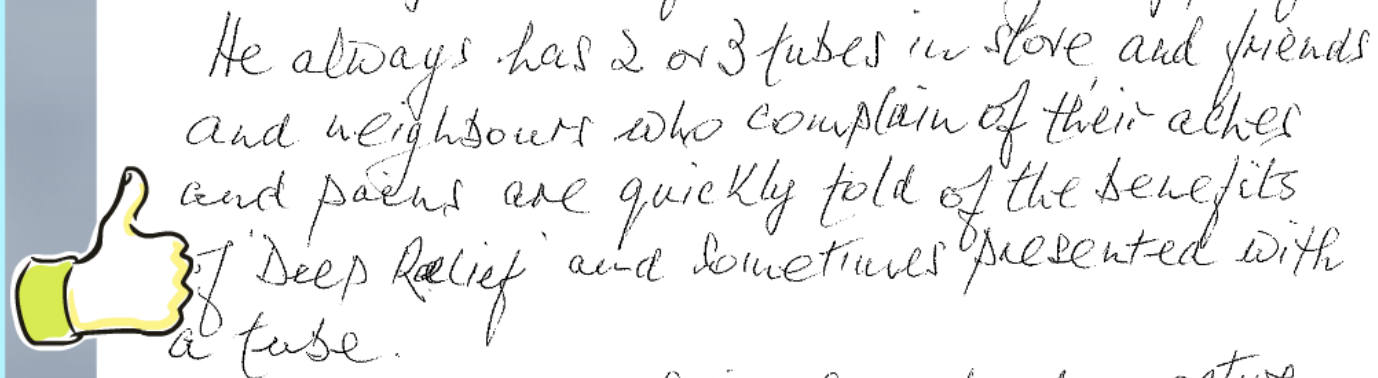 He always has 2 or 3 tubes in store and friends
and neighbours who complain of their aches
and pains are quickly told of the benefits
of 'Deep Relief' and sometimes presented with
a tube.